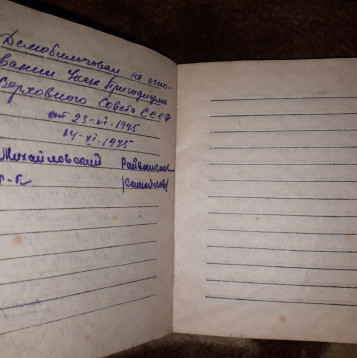 Демобилизован на осно-
вании Указ Президиума
Верховного Совета СССР
от 23-VI-1945
24-XI-1945
Михайловский Райвоенком
/Самойлов/